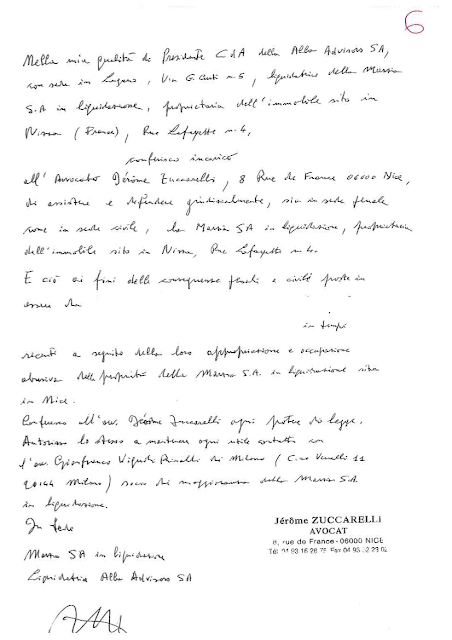 6
Nella mia qualità di Presidente CdA della Alba Advisors SA,
con sede in Lugano, Via G. Canti n. 5, liquidatrice della Massa
S.A. in liquidazione, proprietaria dell'immobile sito in
Nizza (France), Rue Lafayette n. 4,
conferisco incarico
all'Avvocato Jérôme Zuccarelli, 8 Rue de France 06000 Nice,
di assistere e difendere giudizialmente, sia in sede penale
come in sede civile, la Massa SA in liquidazione, proprietaria
dell'immobile sito in Nizza, Rue Lafayette n. 4.
E ciò ai fini delle conseguenze penali e civili poste in
essere da
in tempi
recenti a seguito della loro appropriazione e occupazione
abusiva della proprietà della Massa S.A. in liquidazione sita
in Nice.
Conferisco all'avv. Jérôme Zuccarelli ogni potere di legge.
Autorizzo lo stesso a mantenere ogni utile contatto con
l'avv. Gianfranco di Milano (
20144 Milano) socio di maggioranza della Massa S.A.
in liquidazione.
In fede
Jérôme ZUCCARELLI
AVOCAT
8, rue de France - 06000 NICE
Tél. 04 93 16 28 76 Fax 04 93 02
Massa SA in liquidazione
Liquidatrice Alba Advisors SA